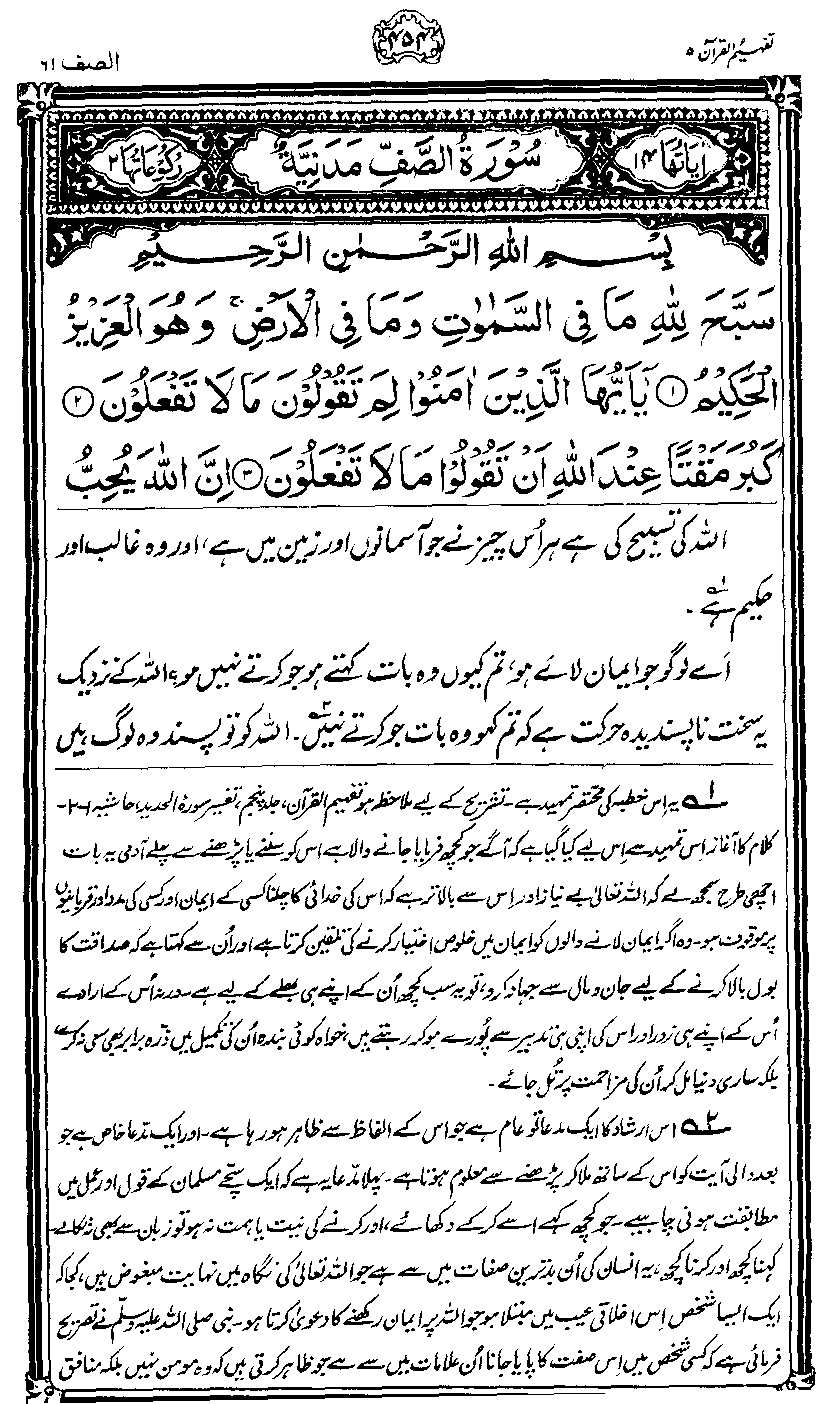 تفہیم القرآن ۵
۴۵۴
الصف ۶۱
اٰيَاتُهَا ۱۴
سُوْرَةُ الصَّفِّ مَدَنِيَّةٌ
رُكُوْعَاتُهَا ۲
بِسْمِ اللهِ الرَّحْمٰنِ الرَّحِيْمِ
سَبَّحَ لِلّٰهِ مَا فِى السَّمٰوٰتِ وَمَا فِى الْاَرْضِ ۚ وَهُوَ الْعَزِيْزُ
الْحَكِيْمُ ۱ يٰۤاَيُّهَا الَّذِيْنَ اٰمَنُوْا لِمَ تَقُوْلُوْنَ مَا لَا تَفْعَلُوْنَ ۲
كَبُرَ مَقْتًا عِنْدَ اللهِ اَنْ تَقُوْلُوْا مَا لَا تَفْعَلُوْنَ ۳ اِنَّ اللهَ يُحِبُّ
اللہ کی تسبیح کی ہے ہر اُس چیز نے جو آسمانوں اور زمین میں ہے، اور وہ غالب اور
حکیم ہے۱۔
اَے لوگو جو ایمان لائے ہو، تم کیوں وہ بات کہتے ہو جو کرتے نہیں ہو؟ اللہ کے نزدیک
یہ سخت ناپسندیدہ حرکت ہے کہ تم کہو وہ بات جو کرتے نہیں۲۔ اللہ کو تو پسند وہ لوگ ہیں
۱ یہ اِس خطبہ کی مختصر تمہید ہے۔ تشریح کے لیے ملاحظہ ہو تفہیم القرآن، جلد پنجم، تفسیر سورۂ الحدید، حاشیہ ۱-۲۔
کلام کا آغاز اِس تمہید سے اِس لیے کیا گیا ہے کہ آگے جو کچھ فرمایا جانے والا ہے اس کو سننے یا پڑھنے سے پہلے آدمی یہ بات
اچھی طرح سمجھ لے کہ اللہ تعالیٰ بے نیاز اور اِس سے بالاتر ہے کہ اس کی خدائی کا چلنا کسی کے ایمان اور کسی کی مدد اور قربانیوں
پر موقوف ہو۔ وہ اگر ایمان لانے والوں کو ایمان میں خلوص اختیار کرنے کی تلقین کرتا ہے اور اُن سے کہتا ہے کہ صداقت کا
بول بالا کرنے کے لیے جان و مال سے جہاد کرو، تو یہ سب کچھ اُن کے اپنے ہی بھلے کے لیے ہے۔ ورنہ اُس کے ارادے
اُس کے اپنے ہی زور اور اس کی اپنی ہی تدبیر سے پُورے ہو کر رہتے ہیں، خواہ کوئی بندہ اُن کی تکمیل میں ذرّہ برابر بھی سعی نہ کرے
بلکہ ساری دنیا مل کر اُن کی مزاحمت پر تُل جائے۔
۲ اس ارشاد کا ایک مدعا تو عام ہے جو اس کے الفاظ سے ظاہر ہو رہا ہے۔ اور ایک مدعا خاص ہے جو
بعد والی آیت کو اس کے ساتھ ملا کر پڑھنے سے معلوم ہوتا ہے۔ پہلا مدّعا یہ ہے کہ ایک سچّے مسلمان کے قول اور عمل میں
مطابقت ہونی چاہیے۔ جو کچھ کہے اسے کر کے دکھائے، اور کرنے کی نیت یا ہمت نہ ہو تو زبان سے بھی نہ نکالے۔
کہنا کچھ اور کرنا کچھ، یہ انسان کی اُن بدترین صفات میں سے ہے جو اللہ تعالیٰ کی نگاہ میں نہایت مبغوض ہیں، کجا کہ
ایک ایسا شخص اِس اخلاقی عیب میں مبتلا ہو جو اللہ پر ایمان رکھنے کا دعویٰ کرتا ہو۔ نبی صلی اللہ علیہ وسلّم نے تصریح
فرمائی ہے کہ کسی شخص میں اِس صفت کا پایا جانا اُن علامات میں سے ہے جو ظاہر کرتی ہیں کہ وہ مومن نہیں بلکہ منافق